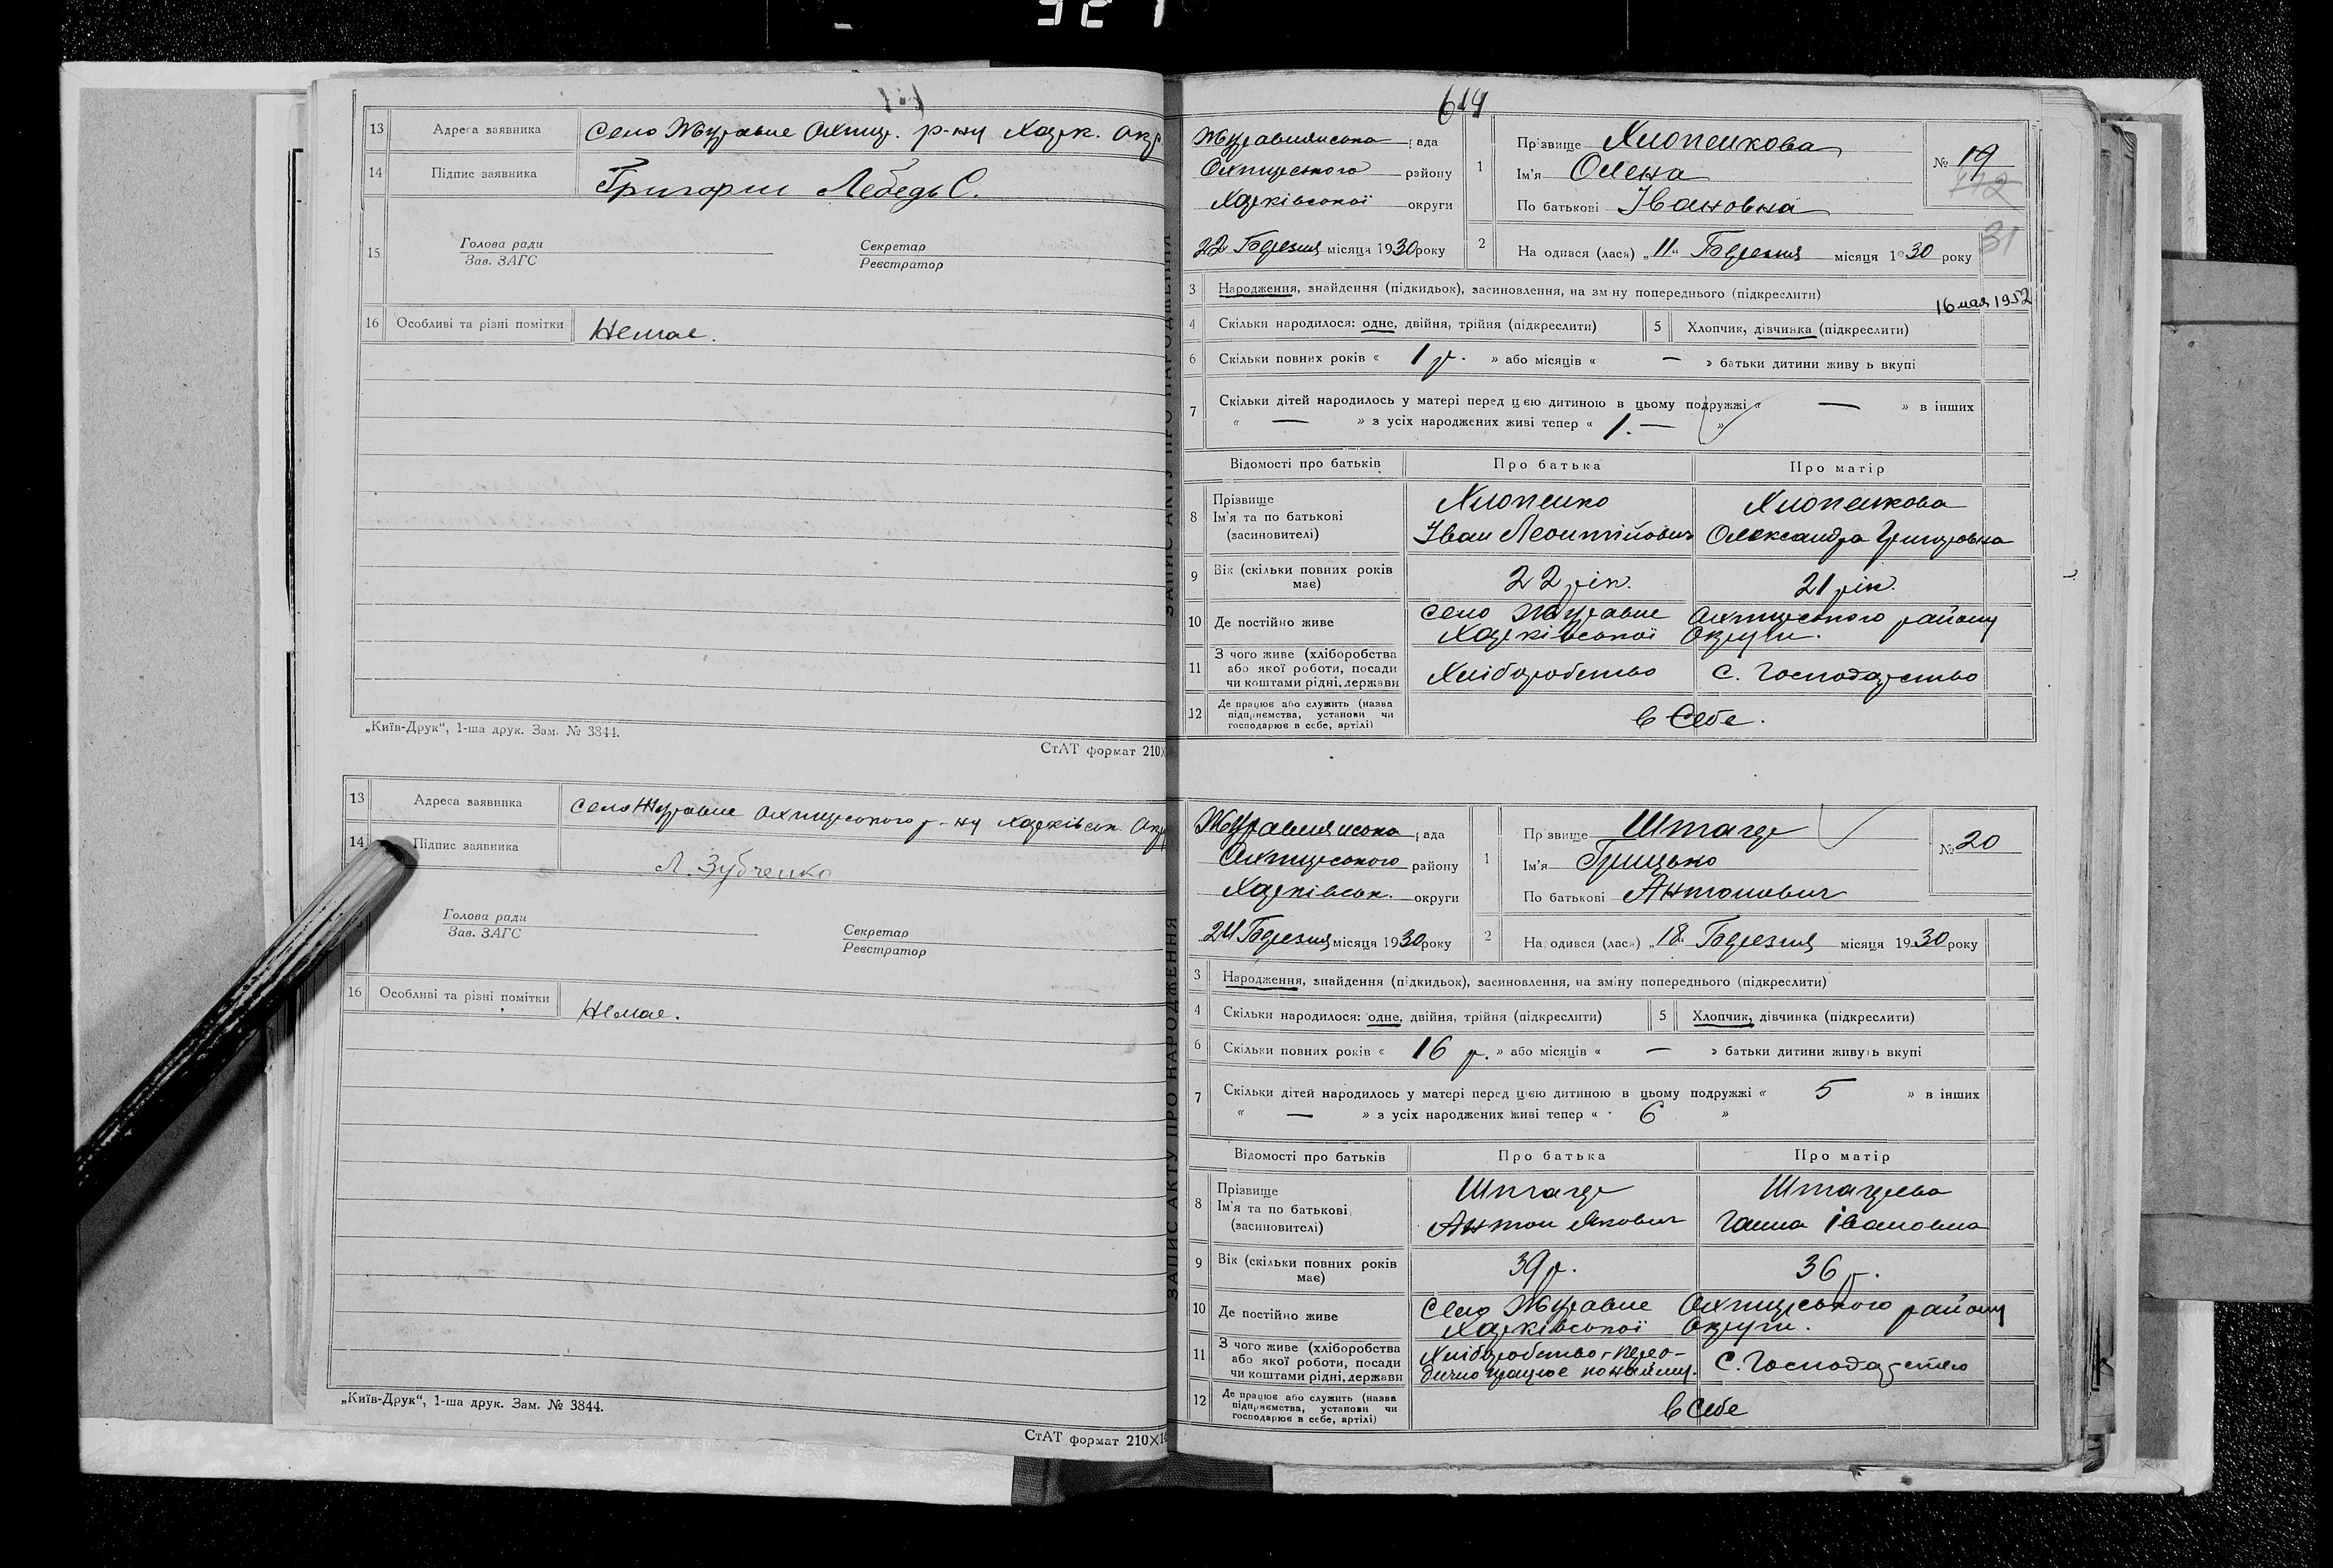 13 Адреса заявника Село Журавне Охтир. р-ну Харк. Окр
14 Підпис заявника Григорий Лебедь С.
15 Голова ради Секретар
Зав. ЗАГС Реєстратор
16 Особливі та різні помітки Немає.
„Київ-Друк“, 1-ша друк. Зам. № 3844.
СтАТ формат 210×
13 Адреса заявника Село Журавне Охтирського р-ну Харківськ. Окр
14 Підпис заявника Л. Зубченко
Голова ради Секретар
Зав. ЗАГС Реєстратор
16 Особливі та різні помітки Немає.
„Київ-Друк“, 1-ша друк. Зам. № 3844.
СтАТ формат 210×1
ЗАПИС АКТУ ПРО НАРОДЖЕННЯ
614
Журавлянська рада
Охтирського району
Харківської округи
22 Березня місяця 1930 року
1 Прізвище Хлопенкова
Ім'я Олена
По батькові Івановна
№ 19
31
2 На одився (лася) „11“ Березня місяця 1930 року
3 Народження, знайдення (підкидьок), засиновлення, на зміну попереднього (підкреслити)
16 мая 1952
4 Скільки народилося: одне, двійня, трійня (підкреслити) 5 Хлопчик, дівчинка (підкреслити)
6 Скільки повних років « 1 р. » або місяців « — » батьки дитини живу ь вкупі
7 Скільки дітей народилось у матері перед цією дитиною в цьому подружжі « — » в інших
« — » з усіх народжених живі тепер « 1. — »
Відомості про батьків Про батька Про матір
8 Прізвище Хлопенко Хлопенкова
Ім'я та по батькові Іван Леонтійович Олександра Григоровна
(засиновителі)
9 Вік (скільки повних років має) 22 рік. 21 рік.
10 Де постійно живе Село Журавне Охтирського району
Харківської Округи.
11 З чого живе (хліборобства
або якої роботи, посади Хліборобство С. Господарство
чи коштами рідні, держави
12 Де працює або служить (назва
підприємства, установи чи в Себе.
господарює в себе, артілі)
ЗАПИС АКТУ ПРО НАРОДЖЕННЯ
Журавлянська рада
Охтирського району
Харківськ. округи
24 Березня місяця 1930 року
1 Прізвище Штагер
Ім'я Грицько
По батькові Антонович
№ 20
2 На одився (лася) „18“ Березня місяця 1930 року
3 Народження, знайдення (підкидьок), засиновлення, на зміну попереднього (підкреслити)
4 Скільки народилося: одне, двійня, трійня (підкреслити) 5 Хлопчик, дівчинка (підкреслити)
6 Скільки повних років « 16 р. » або місяців « — » батьки дитини живуть вкупі
7 Скільки дітей народилось у матері перед цією дитиною в цьому подружжі « 5 » в інших
« — » з усіх народжених живі тепер « 6 »
Відомості про батьків Про батька Про матір
8 Прізвище Штагер Штагрева
Ім'я та по батькові Антон Якович Ганна Івановна
(засиновителі)
9 Вік (скільки повних років має) 39 р. 36 р.
10 Де постійно живе Село Журавне Охтирського району
Харківської Округи.
11 З чого живе (хліборобства Хліборобство, перео-
або якої роботи, посади дично працює по найму. С. Господарство
чи коштами рідні, держави
12 Де працює або служить (назва
підприємства, установи чи в Себе
господарює в себе, артілі)